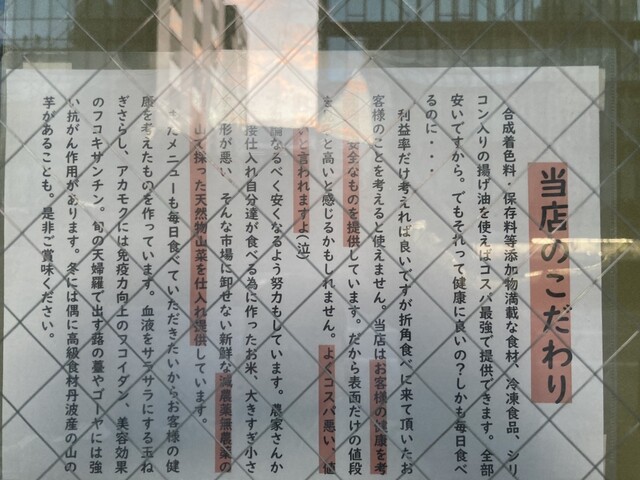 当店のこだわり
合成着色料・保存料等添加物満載な食材、冷凍食品、シリ
コン入りの揚げ油を使えばコスパ最強で提供できます。全部
安いですから。でもそれって健康に良いの？しかも毎日食べ
るのに・・・
利益率だけ考えれば良いですが折角食べに来て頂いたお
客様のことを考えると使えません。当店はお客様の健康を考
安全なものを提供しています。だから表面だけの値段
と高いと感じるかもしれません。よくコスパ悪い、値
いと言われますよ(泣)
論なるべく安くなるよう努力もしています。農家さんか
接仕入れ自分達が食べる為に作ったお米、大きすぎ小さ
形が悪い、そんな市場に卸せない新鮮な減農薬無農薬の
山で採った天然物山菜を仕入れ提供しています。
たメニューも毎日食べていただきたいからお客様の健
康を考えたものを作っています。血液をサラサラにする玉ね
ぎさらし、アカモクには免疫力向上のフコイダン、美容効果
のフコキサンチン。旬の天婦羅で出す蕗の薹やゴーヤには強
い抗がん作用があります。冬には偶に高級食材丹波産の山の
芋があることも。是非ご賞味ください。